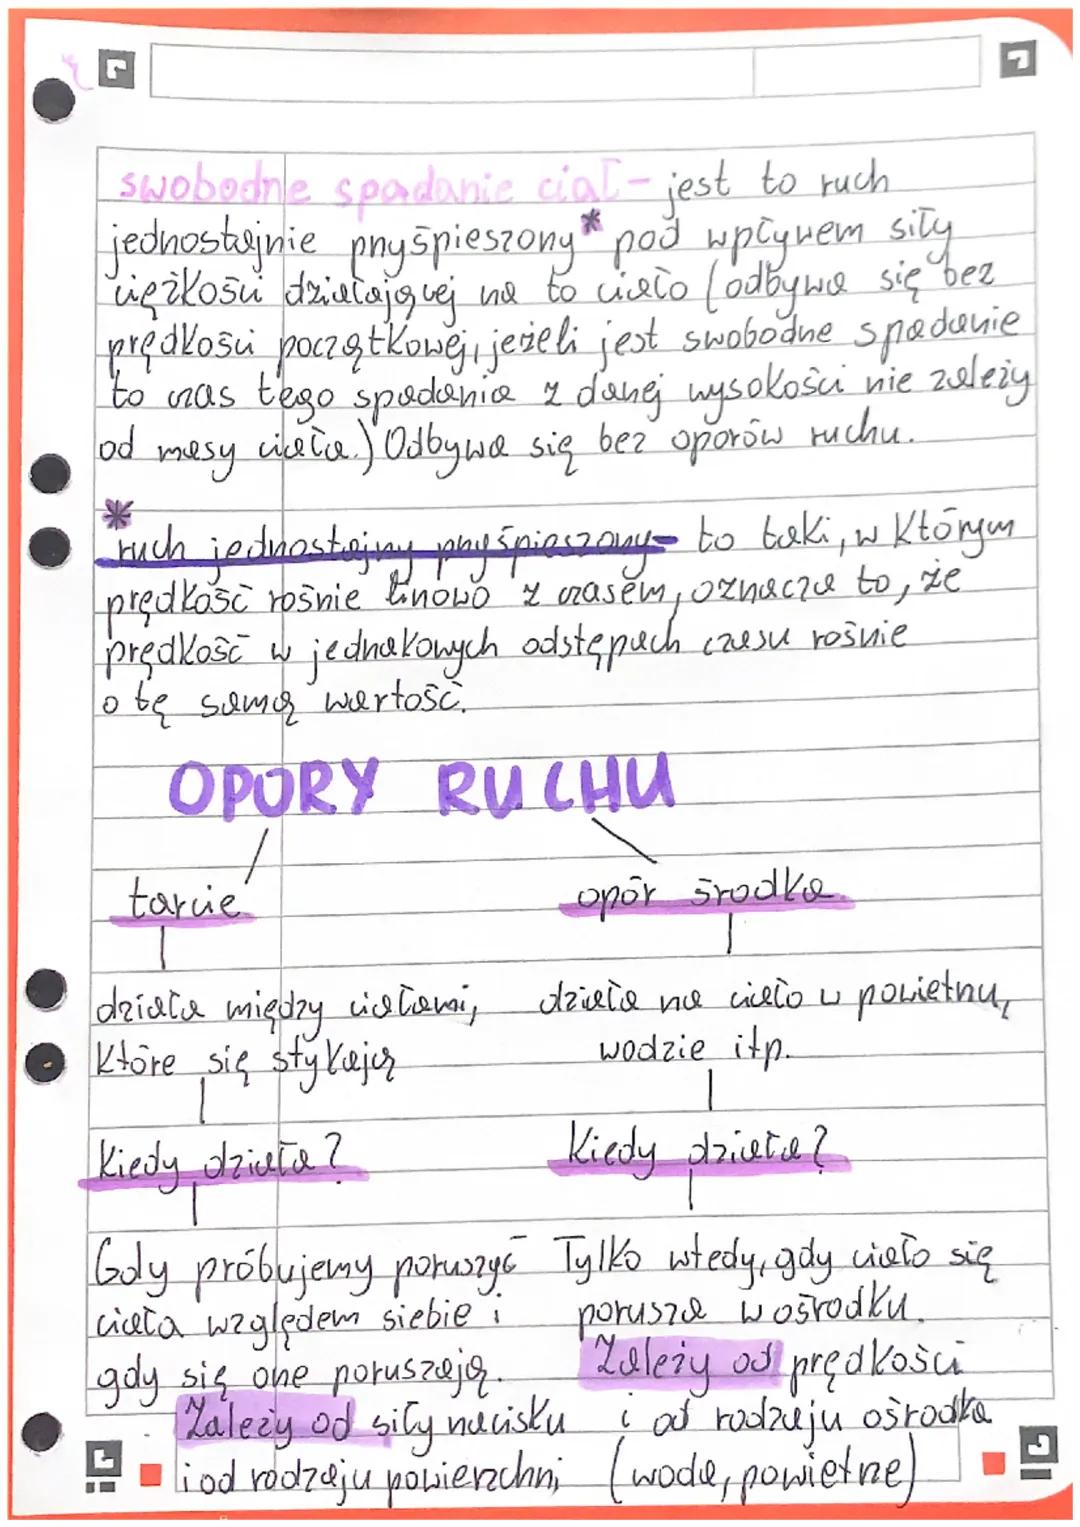 swobodne spadanie ciał - jest to ruch
jednostajnie przyśpieszony* pod wpływem siły
ciężkości działającej na to ciało (odbywa się bez
prędkości początkowej, jeżeli jest swobodne spadanie
to czas tego spadania z danej wysokości nie zależy
od masy ciała.) Odbywa się bez oporów ruchu.
*
ruch jednostajny przyśpieszony - to taki, w którym
prędkość rośnie linowo z czasem, oznacza to, że
prędkość w jednakowych odstępach czasu rośnie
o tę samą wartość.
OPORY RUCHU
tarcie opór środka
działa między ciałami, działa na ciało w powietrzu,
które się stykają wodzie itp.
Kiedy działa? Kiedy działa?
Gdy próbujemy poruszyć Tylko wtedy, gdy ciało się
ciała względem siebie i porusza w ośrodku.
gdy się one poruszają. Zależy od prędkości
Zależy od siły nacisku i od rodzaju ośrodka
i od rodzaju powierzchni (woda, powietrze)